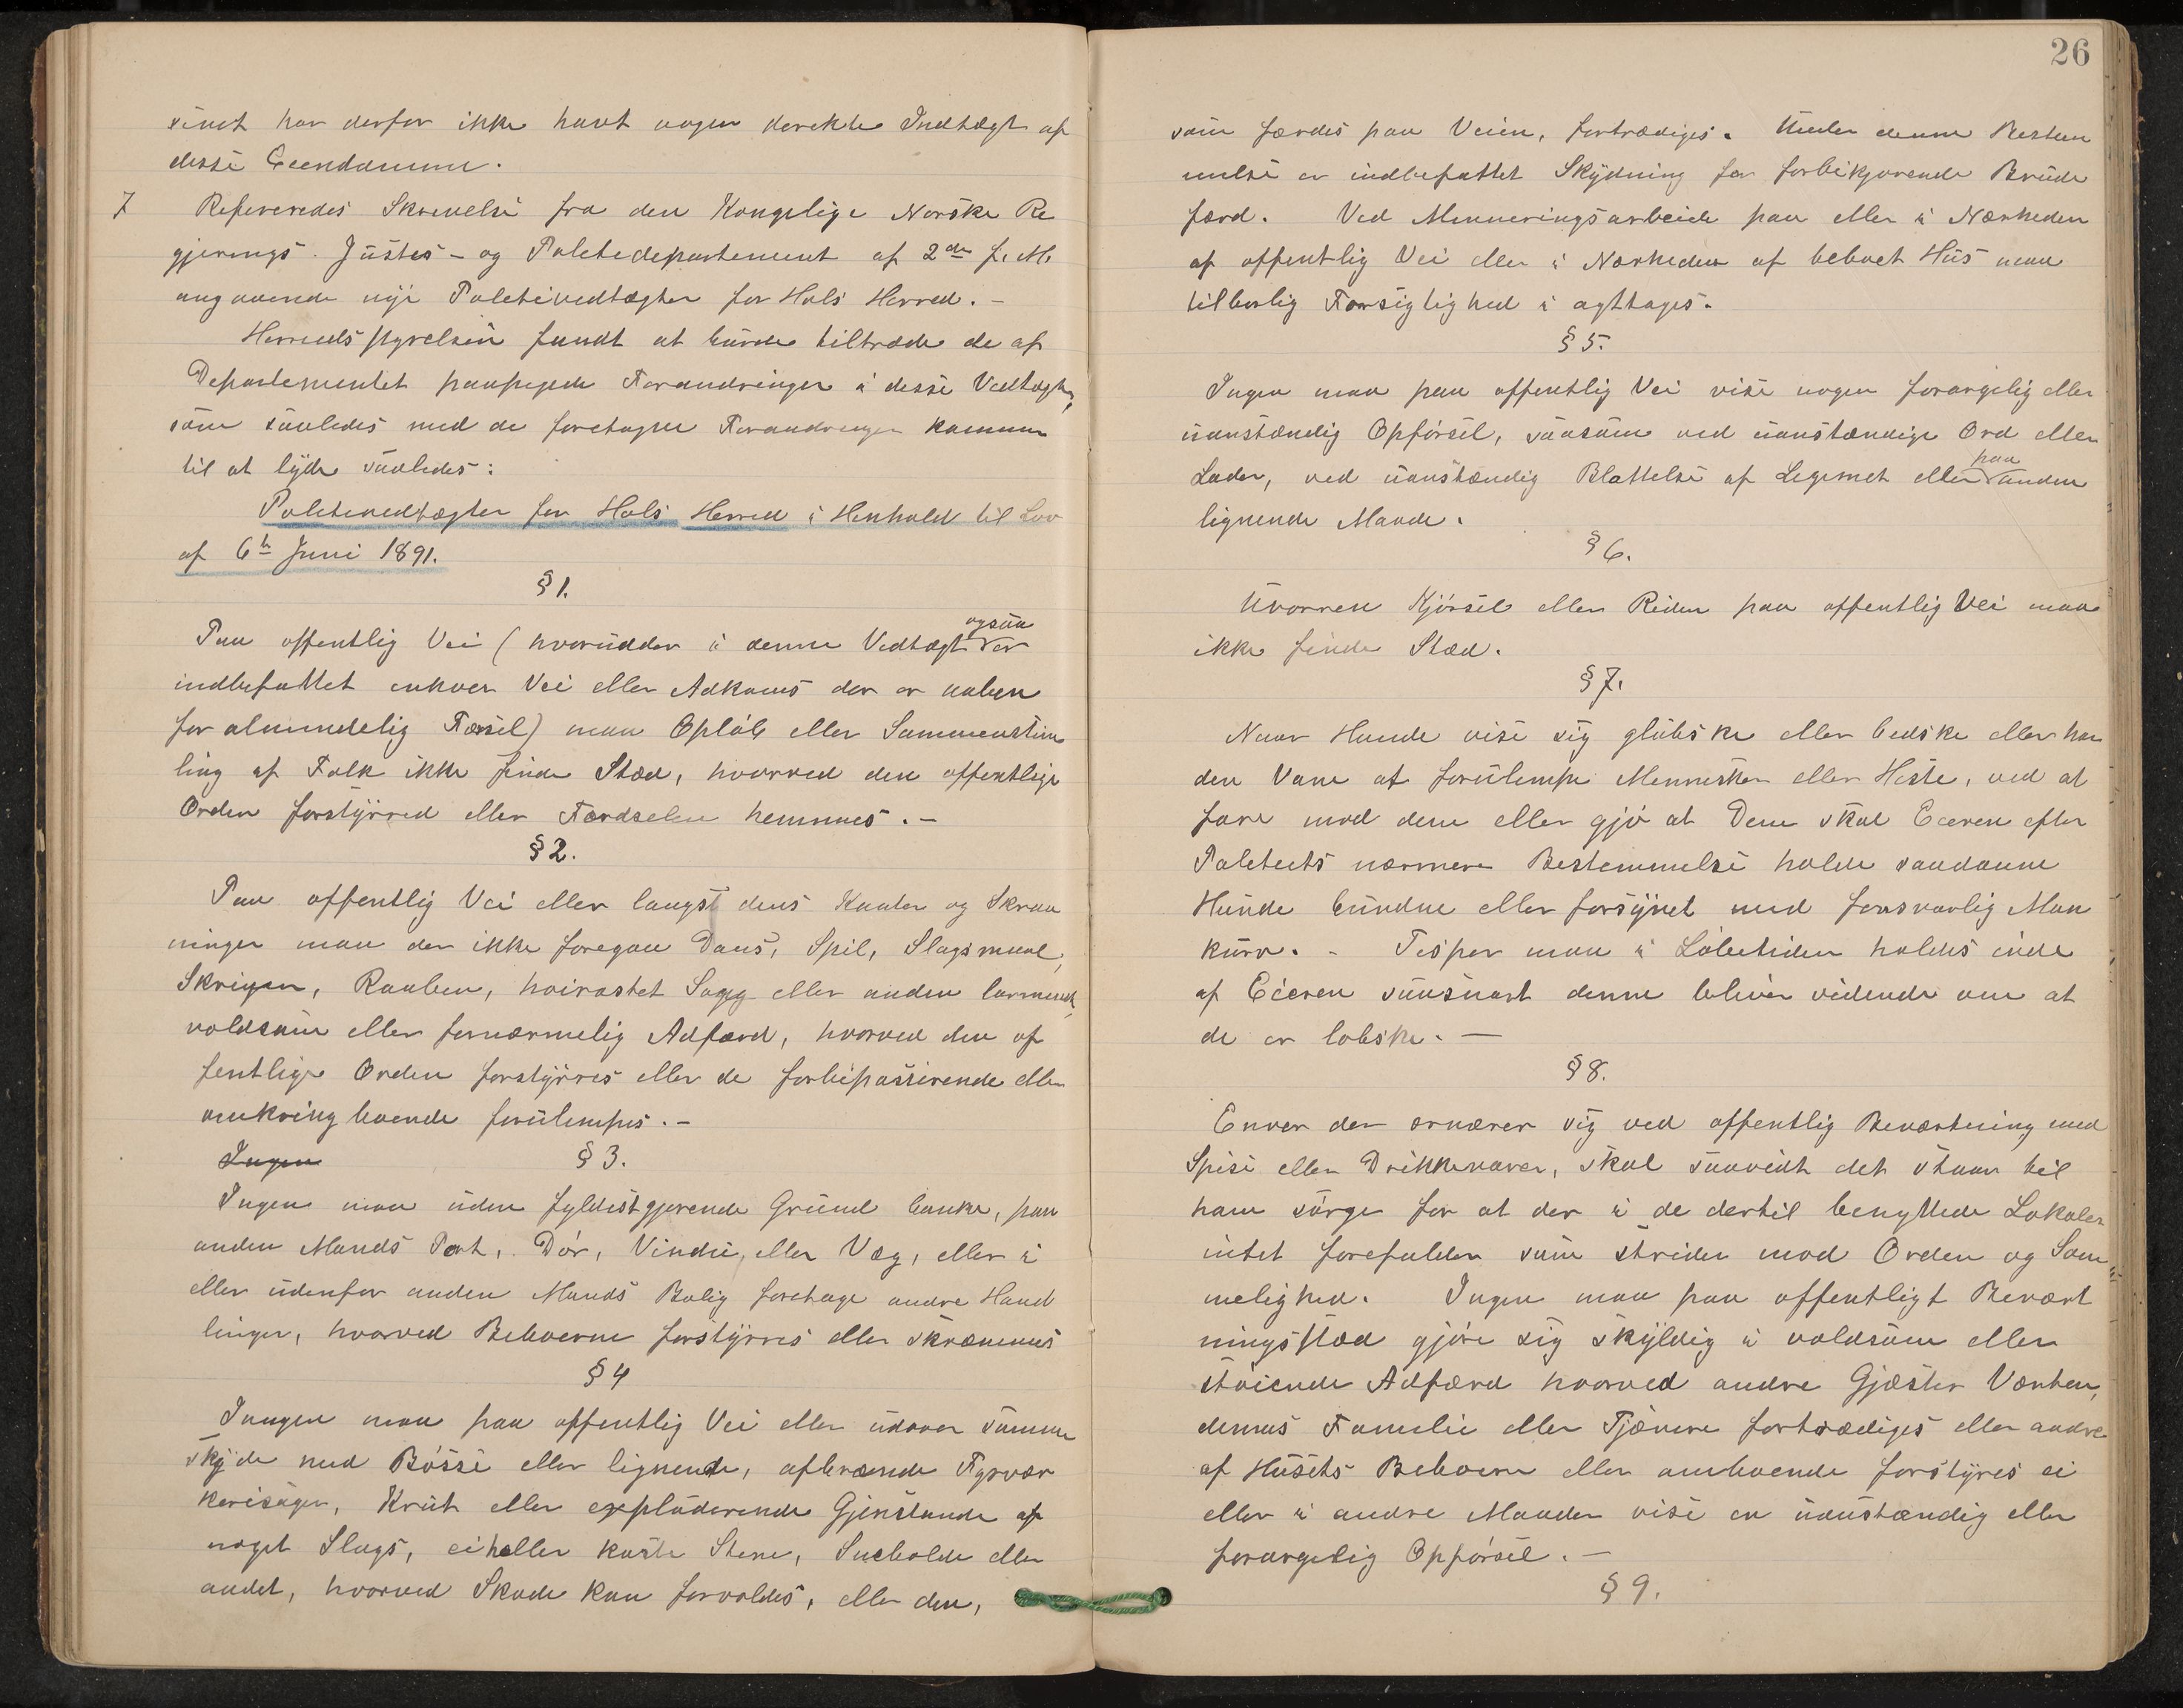 sinet har derfor ikke havt nogen derekte Indtægt af
disse Eiendomme.
7 Refereredes Skrivelse fra den Kongelige Norske Re
gjerings Justis- og Politidepartement af 2den f. M.
angaaende nye Politivedtægter for Hols Herred. -
Herredsstyrelsen fandt at burde tiltræde de af
Departementet paapegede Forandringer i disse Vedtægter,
som saaledes med de foretagne Forandringer kommer
til at lyde saaledes:
Politivedtægter for Hols Herred i Henhold til Lov
af 6te Juni 1891.
§ 1.
Paa offentlig Vei (hvorudder i denne Vedtægt ogsaa er
indbefattet enhver Vei eller Adkoms der er aaben
for almindelig Færsel) maa Opløb eller Sammenstim
ling af Folk ikke finde Sted, hvorved den offentlige
Orden forstyrred eller Færdselen hemmes. -
§ 2.
Paa offentlig Vei eller langst dens Kanter og Skraa
ninger maa der ikke foregaa Dans, Spil, Slagsmaal,
Skrigen, Raaben, høirøstet Sagg eller anden larmende,
voldsom eller fornærmelig Adfærd, hvorved den of
fentlige Orden forstyrres eller de forbipasserende eller
omkringboende forulempes. -
Ingen § 3.
Ingen maa uden fyldestgjørende Grund banke, paa
anden Mands Port, Dør, Vindu, eller Væg, eller i
eller udenfor anden Mands Bolig foretage andre Hand
linger, hvorved Beboerne forstyrres eller skræmmes
§ 4
Inngen maa paa offentlig Vei eller udover samme
skyde med Bøsse eller lignende, afbrænde Fyrvær
kerisager, Krut eller exploderende Gjenstande af
noget Slags, eiheller kaste Stene, Snebolde eller
andet, hvorved Skade kan forvoldes, eller den,
26
som færdes paa Veien, fortrædiges. Under denne Bestem
melse er indbefattet Skydning for forbikjørende Brude
færd. Ved Mineringsarbeide paa eller i Nærheden
af offentlig Vei eller i Nærheden af beboet Hus maa
tilbørlig Forsigtighed i agttages.
§ 5.
Ingen maa paa offentlig Vei vise nogen forargelig eller
uanstændig Opførsel, saasom ved uanstændige Ord eller
Lader, ved uanstændig Blottelse af Legemet eller paa anden
lignende Maade.
§ 6.
Uvorren Kjørsel eller Riden paa offentlig Vei maa
ikke finde Sted.
§ 7.
Naar Hunde vise sig glubske eller bedske eller har
den Vane at forulempe Mennesker eller Heste, ved at
fare mod dem eller gjø at Dem skal Eieren efter
Politiets nærmere Bestemmelse holde saadanne
Hunde bundne eller forsynet med forsvarlig Mun
kurv. - Tisper maa i Løbetiden holdes inde
af Eieren saasnart denne bliver vidende om at
de er løbske. -
§ 8.
Enver der ernærer sig ved offentlig Beværtning med
Spise eller Drikkevarer, skal saavidt det staar til
ham sørge for at der i de dertil benyttede Lokaler
intet forefalder som strider mod Orden og Søm
melighed. Ingen maa paa offentligt Bevært
ningssted gjøre sig skyldig i voldsom eller
støiende Adfærd hvorved andre Gjæster Værten,
dennes Familie eller Tjænere fortrædiges eller andre
af Husets Beboere eller omboende forstyres ei
eller i andre Maader vise en uanstændig eller
forargelig Opførsel. -
§ 9.